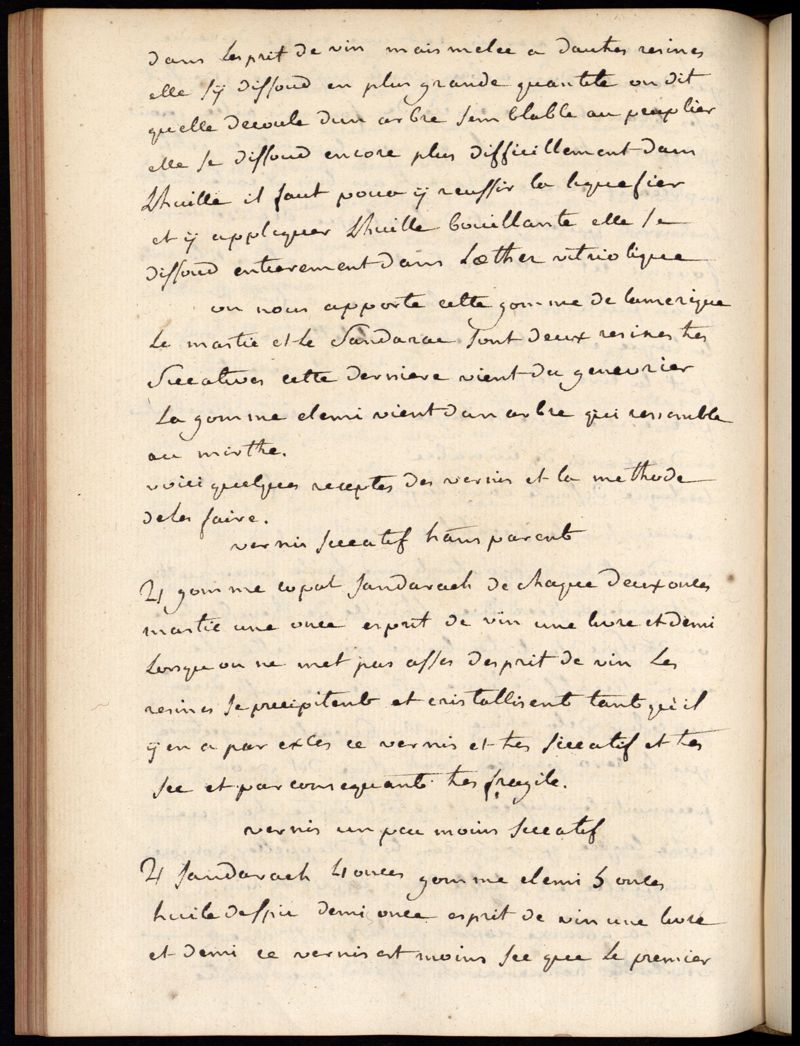 dans Lesprit de vin mais melee a dautres resines
elle sÿ dissoud en plus grande quantite on dit
quelle decoule dun arbre semblable au peuplier
elle se dissoud encore plus difficillement dans
Lhuille il faut pour ÿ reussir la liquefier
et ÿ appliquer Lhuille bouillante elle se
dissoud entierement dans Læther vitriolique
on nous apporte cette gomme de lamerique
Le mastic et le Sandarac sont deux resines tres
Siccatives cette derniere vient du genevrier
La gomme elemi vient dun arbre qui ressemble
au mirthe.
voici quelques receptes des vernis et la methode
de les faire.
vernis siccatif transparent
♃ gomme copal sandarach de chaque deux onces
mastic une once esprit de vin une livre et demi
Lorsquon ne met pas asses desprit de vin Les
resines se precipitent et cristallisent tant quil
ÿ en a par exces ce vernis et tres siccatif et tres
sec et par consequant tres fragile.
vernis un peu moins siccatif
♃ Sandarach 4 onces gomme elemi 5 onces
huile daspic demi once esprit de vin une livre
et demi ce vernis est moins sec que le premier